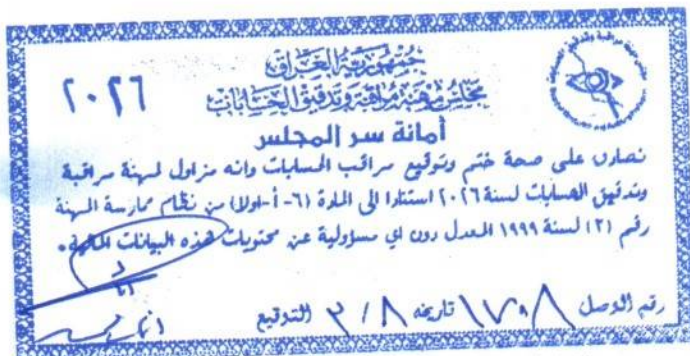 جمهورية العراق
مجلس مهنة مراقبة وتدقيق الحسابات
٢٠٢٦
أمانة سر المجلس
نصادق على صحة ختم وتوقيع مراقب الحسابات وانه مزاول لمهنة مراقبة
وتدقيق الحسابات لسنة ٢٠٢٦ استنادا الى المادة (٦-أ-اولا) من نظام ممارسة المهنة
رقم (٣) لسنة ١٩٩٩ المعدل دون اي مسؤولية عن محتويات هذه البيانات المالية.
رقم الوصل ١٧٠٨ تاريخه ٣/٨ التوقيع